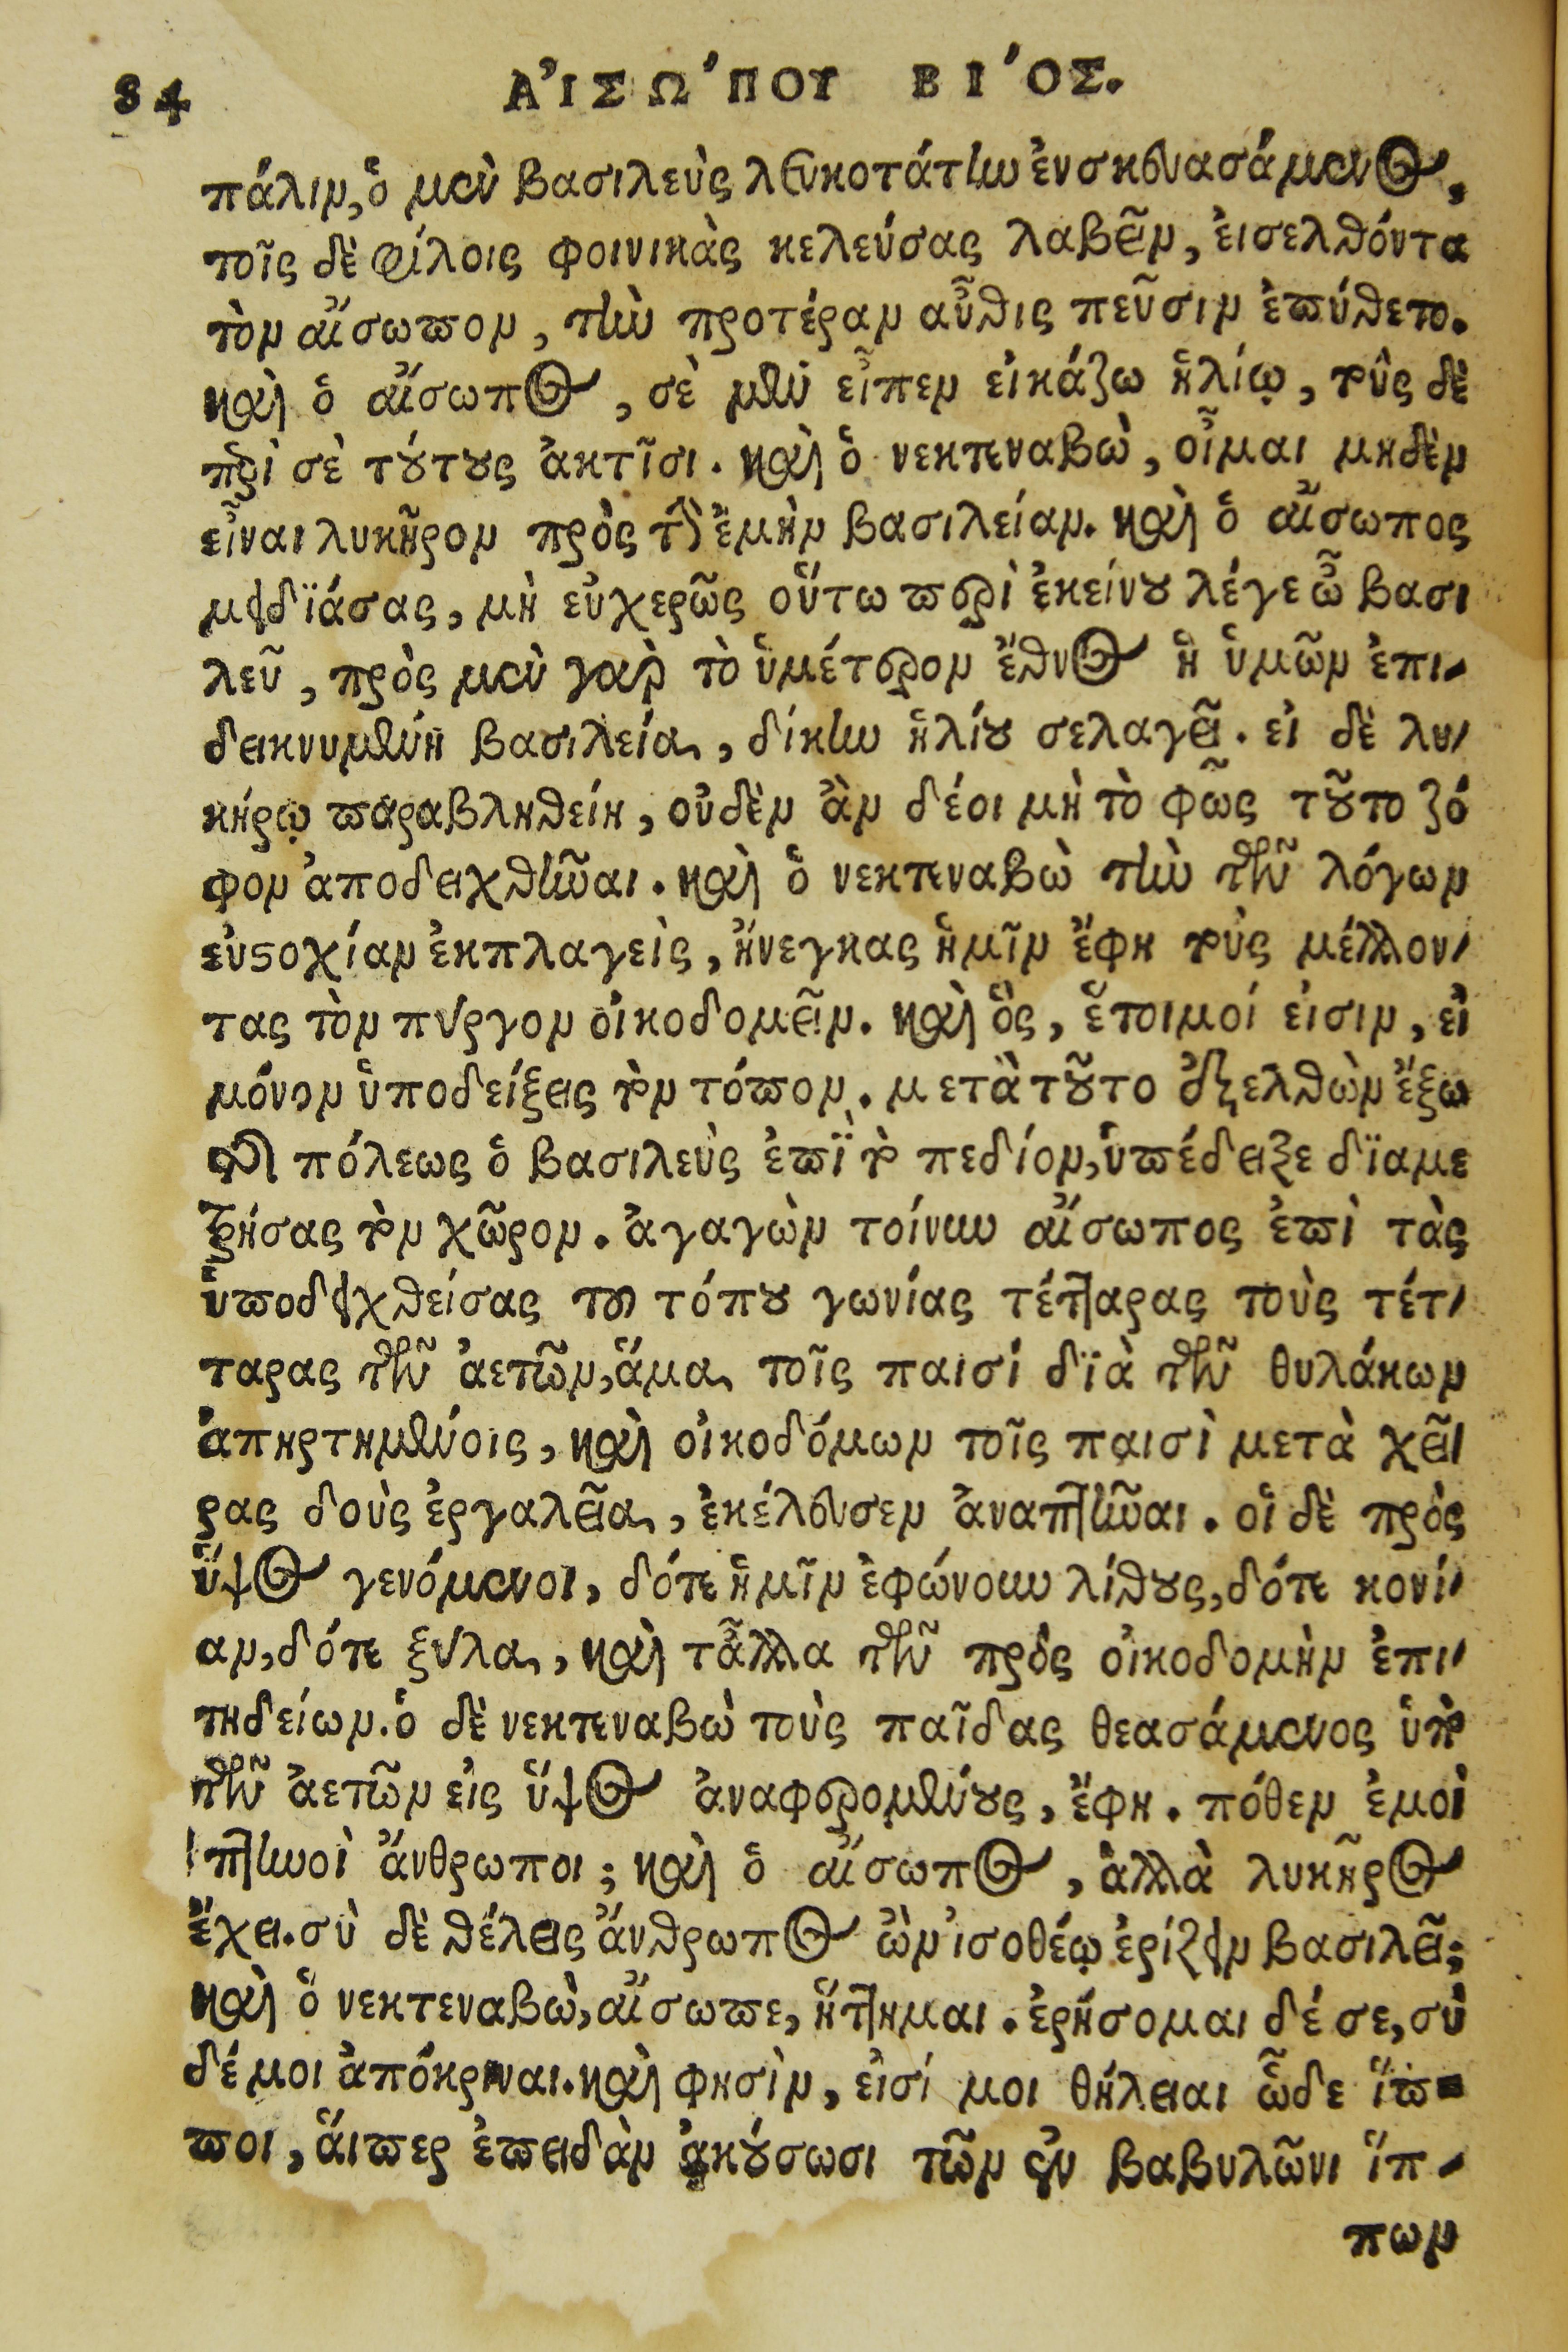 84 ΑἸΣΩ´ΠΟΥ ΒΙ´ΟΣ.
πάλιν, ὁ μὲν βασιλεὺς λευκοτάτην ἐνσκευασάμενος,
τοῖς δὲ φίλοις φοινικὰς κελεύσας λαβεῖν, εἰσελθόντα
τὸν αἴσωπον, τὴν προτέραν αὖθις πεῦσιν ἐπύθετο.
καὶ ὁ αἴσωπος, σὲ μὲν εἶπεν εἰκάζω ἡλίῳ, τοὺς δὲ
περὶ σὲ τούτους ἀκτῖσι. καὶ ὁ νεκτεναβὼ, οἶμαι μηδὲν
εἶναι λυκῆρον πρὸς τὴν ἐμὴν βασιλείαν. καὶ ὁ αἴσωπος
μειδϊάσας, μὴ εὐχερῶς οὕτω περὶ ἐκείνου λέγε ὦ βασι
λεῦ, πρὸς μὲν γὰρ τὸ ὑμέτερον ἔθνος ἡ ὑμῶν ἐπι-
δεικνυμένη βασιλεία, δίκην ἡλίου σελαγεῖ. εἰ δὲ λυ-
κήρῳ παραβληθείη, οὐδὲν ἂν δέοι μὴ τὸ φῶς τοῦτο ζό
φον ἀποδειχθῆναι. καὶ ὁ νεκτεναβὼ τὴν τῶν λόγων
εὐστοχίαν ἐκπλαγεὶς, ἤνεγκας ἡμῖν ἔφη τοὺς μέλλον-
τας τὸν πύργον οἰκοδομεῖν. καὶ ὃς, ἕτοιμοί εἰσιν, εἰ
μόνον ὑποδείξεις τὸν τόπον. μετὰ τοῦτο ἐξελθὼν ἔξω
τῆς πόλεως ὁ βασιλεὺς ἐπῒ τὸ πεδίον, ὑπέδειξε δϊαμε
τρήσας τὸν χῶρον. ἀγαγὼν τοίνυν αἴσωπος ἐπὶ τὰς
ὑποδειχθείσας τοῦ τόπου γωνίας τέτταρας τοὺς τέτ-
ταρας τῶν ἀετῶν, ἅμα τοῖς παισί δϊὰ τῶν θυλάκων
ἀπηρτημένοις, καὶ οἰκοδόμων τοῖς παισὶ μετὰ χεῖ
ρας δοὺς ἐργαλεῖα, ἐκέλευσεν ἀναπτῆναι. οἱ δὲ πρὸς
ὕψος γενόμενοι, δότε ἡμῖν ἐφώνουν λίθους, δότε κονί-
αν, δότε ξύλα, καὶ τἆλλα τῶν πρὸς οἰκοδομὴν ἐπι-
τηδείων. ὁ δὲ νεκτεναβὼ τοὺς παῖδας θεασάμενος ὑπὸ
τῶν ἀετῶν εἰς ὕψος ἀναφερομένους, ἔφη. πόθεν ἐμοὶ
πτηνοὶ ἄνθρωποι; καὶ ὁ αἴσωπος, ἀλλὰ λυκῆρος
ἔχει. σὺ δὲ θέλεις ἄνθρωπος ὢν ἰσοθέῳ ἐρίζειν βασιλεῖ;
καὶ ὁ νεκτεναβὼ, αἴσωπε, ἥττημαι. ἐρήσομαι δέ σε, σὺ
δέ μοι ἀπόκριναι. καὶ φησὶν, εἰσί μοι θήλειαι ὧδε ἵπ-
ποι, ἅιπερ ἐπειδὰν ἀκούσωσι τῶν ἐν βαβυλῶνι ἵπ-
πων